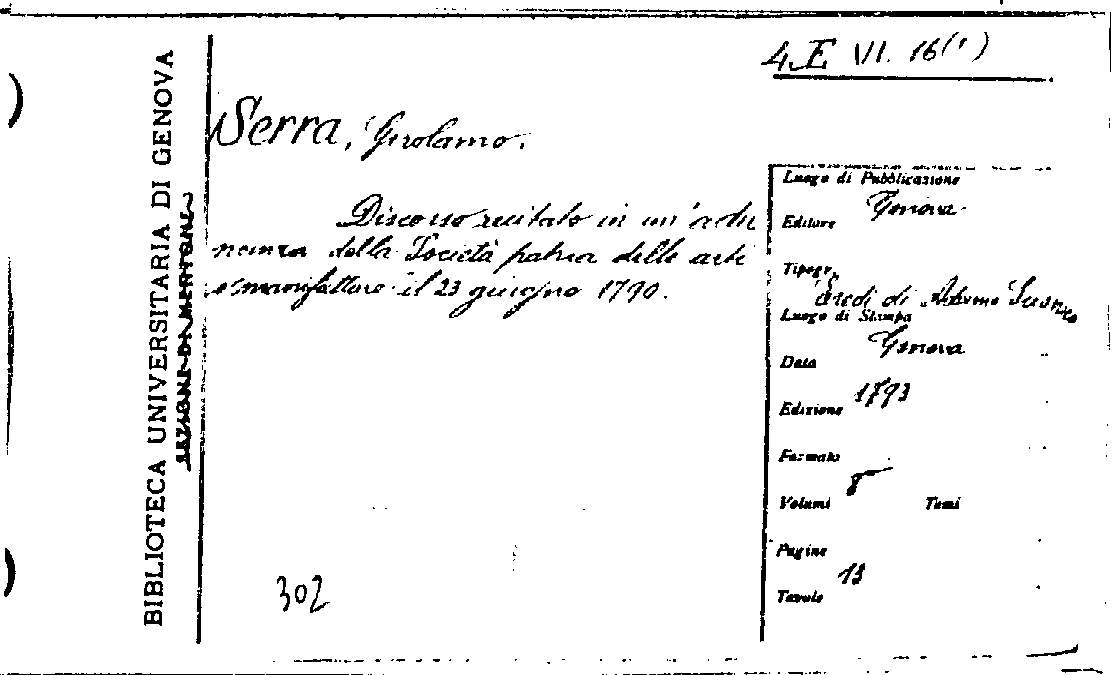 4.E VI. 16(1)
Serra, Girolamo.
Discorso recitato in un'adu
nanza della Società patria delle arti
e manifatture il 23 giugno 1790.
302
BIBLIOTECA UNIVERSITARIA DI GENOVA
Luogo di Pubblicazione
Genova
Editore
Tipogr.
Eredi di Adamo
Luogo di Stampa
Genova
Data
1793
Edizione
Formato
8
Volumi Tomi
Pagine
13
Tavole